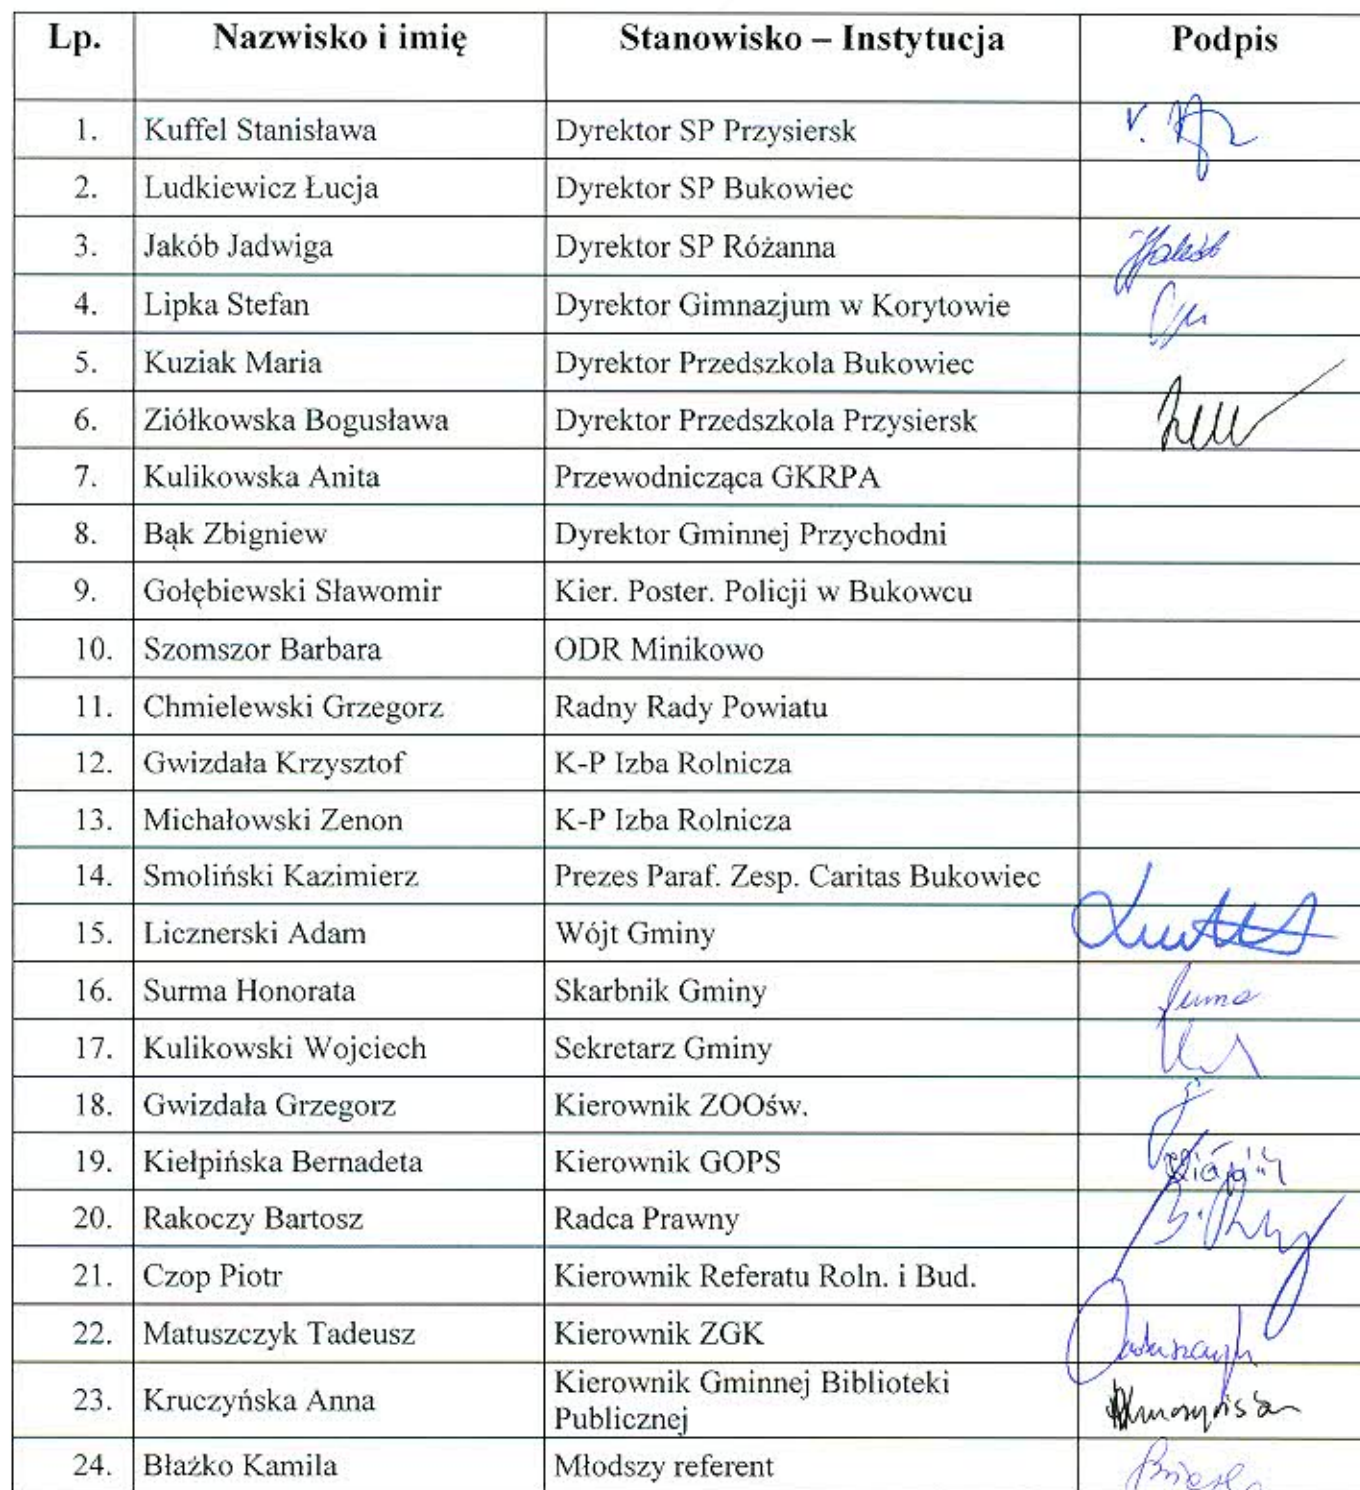 Lp. Nazwisko i imię Stanowisko – Instytucja Podpis
1. Kuffel Stanisława Dyrektor SP Przysiersk
2. Ludkiewicz Łucja Dyrektor SP Bukowiec
3. Jakób Jadwiga Dyrektor SP Różanna
4. Lipka Stefan Dyrektor Gimnazjum w Korytowie
5. Kuziak Maria Dyrektor Przedszkola Bukowiec
6. Ziółkowska Bogusława Dyrektor Przedszkola Przysiersk
7. Kulikowska Anita Przewodnicząca GKRPA
8. Bąk Zbigniew Dyrektor Gminnej Przychodni
9. Gołębiewski Sławomir Kier. Poster. Policji w Bukowcu
10. Szomszor Barbara ODR Minikowo
11. Chmielewski Grzegorz Radny Rady Powiatu
12. Gwizdała Krzysztof K-P Izba Rolnicza
13. Michałowski Zenon K-P Izba Rolnicza
14. Smoliński Kazimierz Prezes Paraf. Zesp. Caritas Bukowiec
15. Licznerski Adam Wójt Gminy
16. Surma Honorata Skarbnik Gminy
17. Kulikowski Wojciech Sekretarz Gminy
18. Gwizdała Grzegorz Kierownik ZOOśw.
19. Kiełpińska Bernadeta Kierownik GOPS
20. Rakoczy Bartosz Radca Prawny
21. Czop Piotr Kierownik Referatu Roln. i Bud.
22. Matuszczyk Tadeusz Kierownik ZGK
23. Kruczyńska Anna Kierownik Gminnej Biblioteki
Publicznej
24. Błażko Kamila Młodszy referent